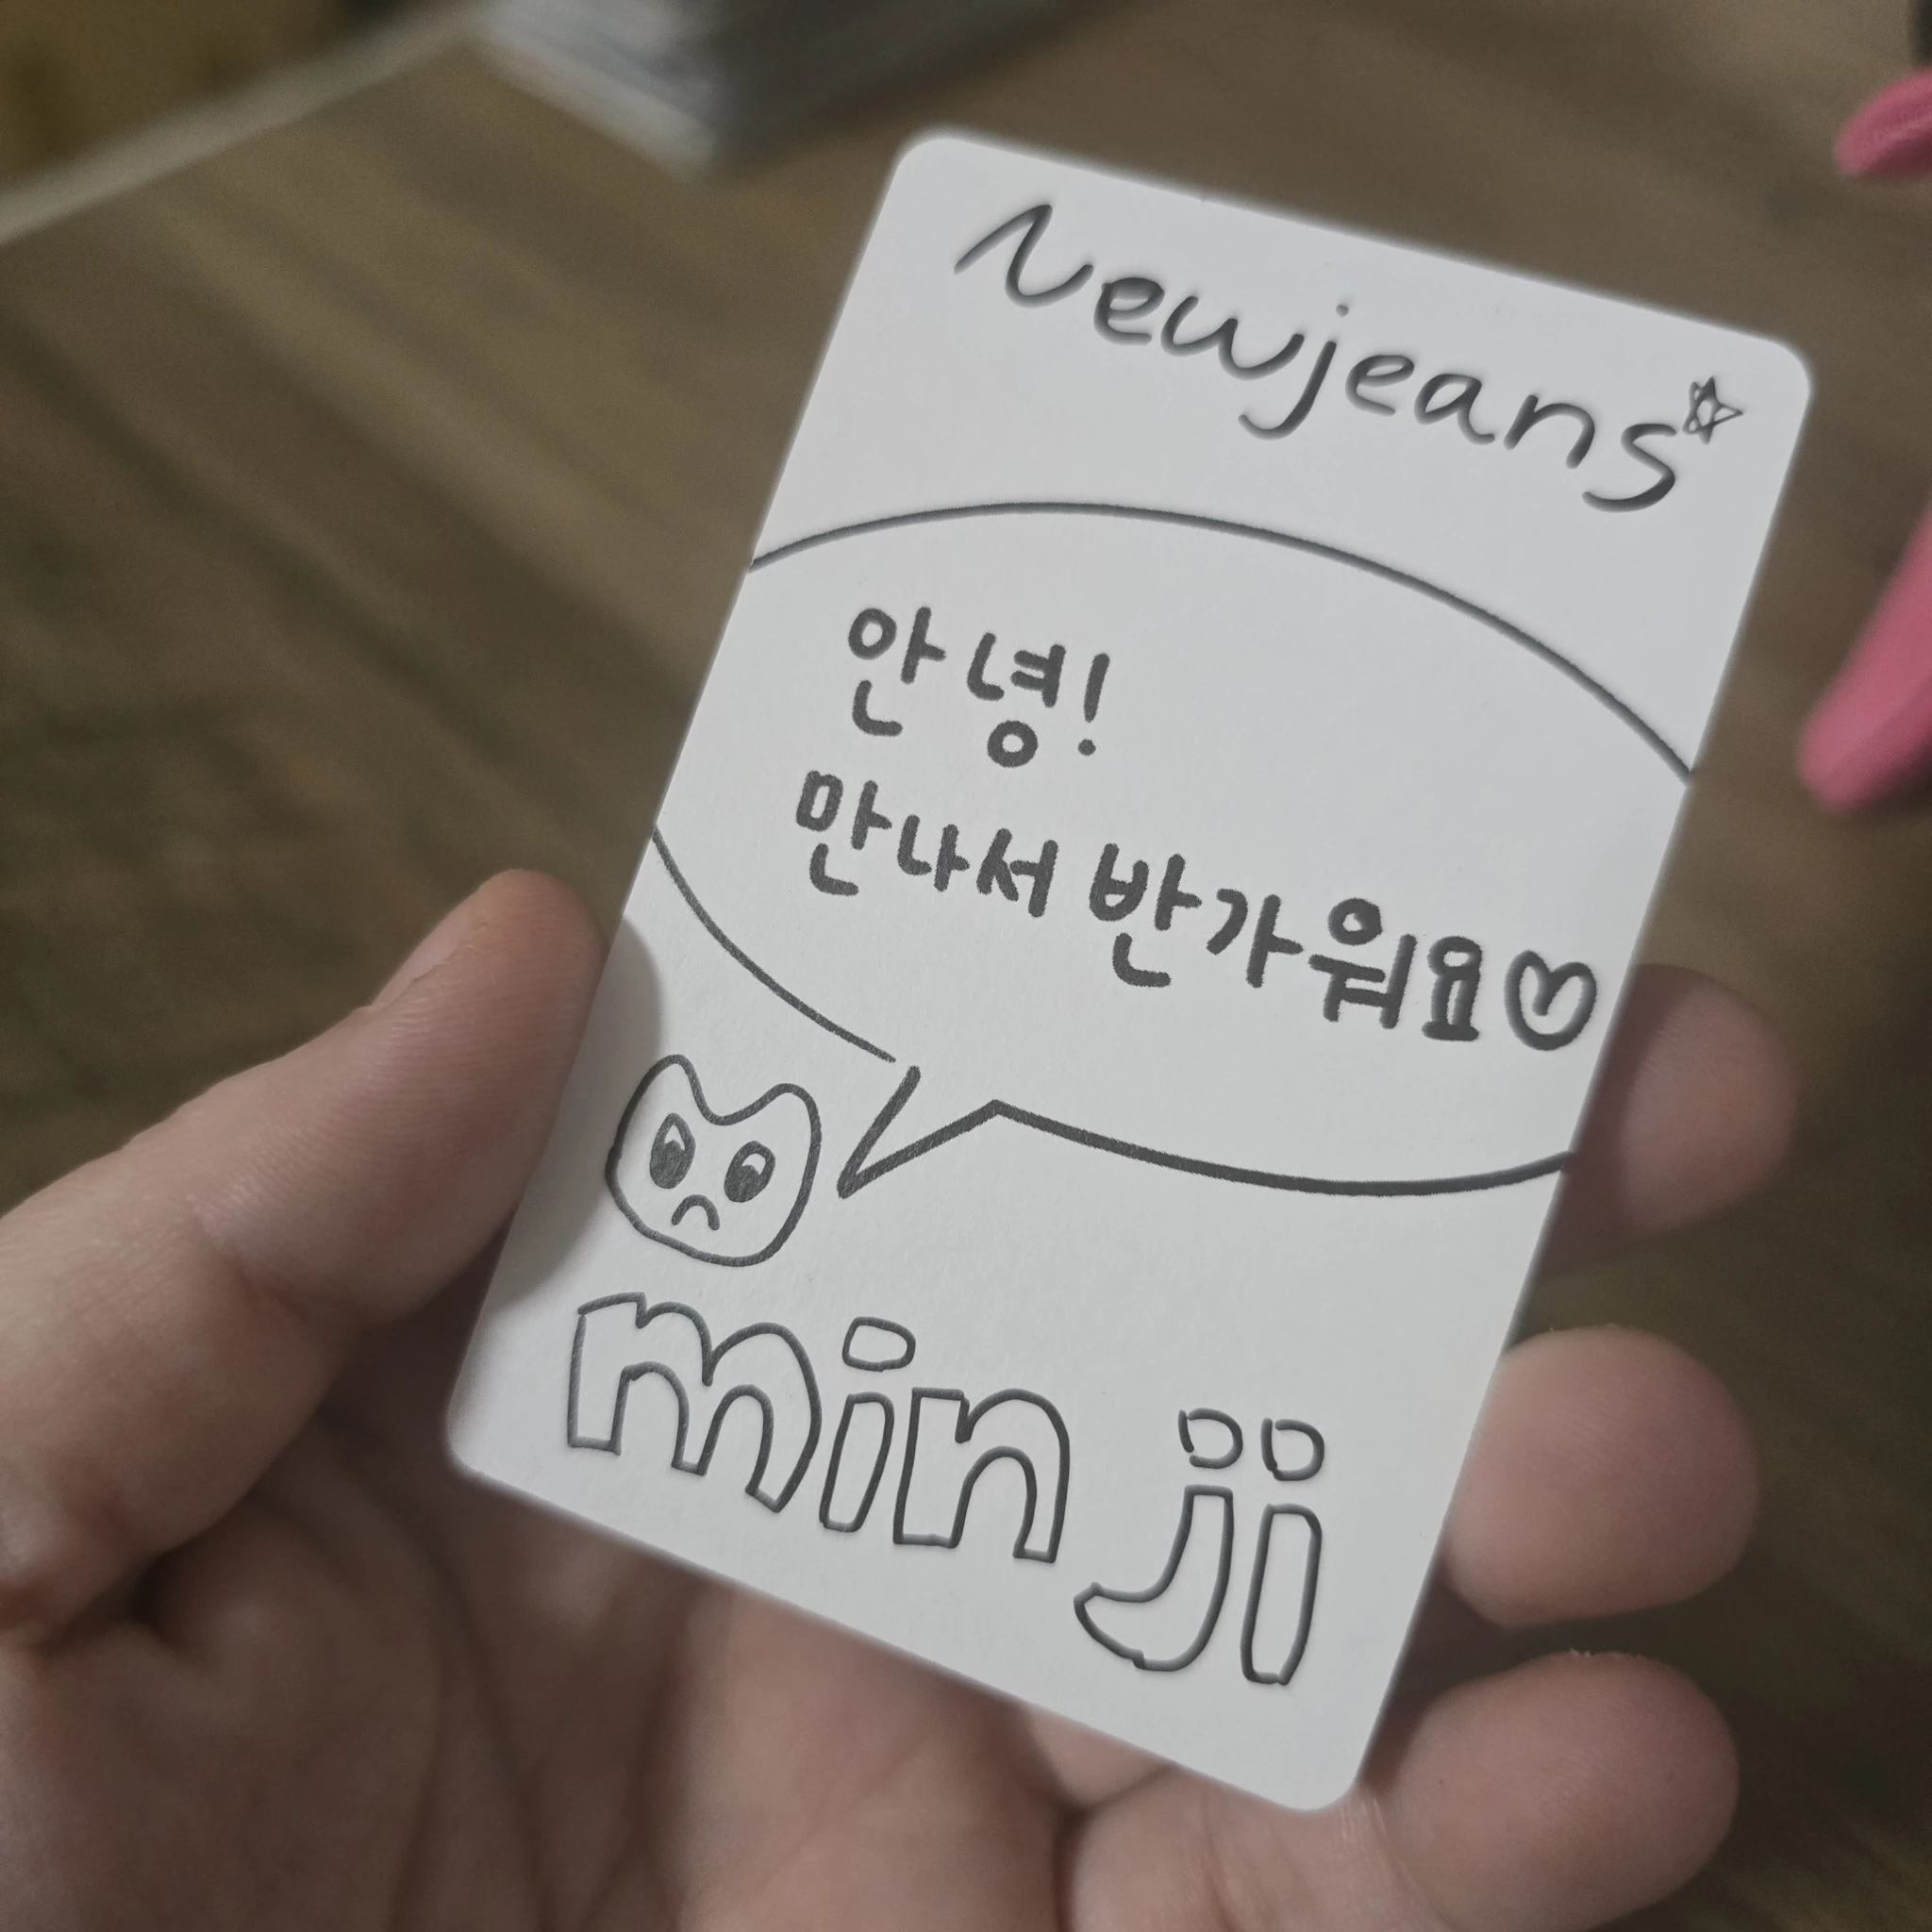 Newjeans
안녕!
만나서 반가워요♡
min ji